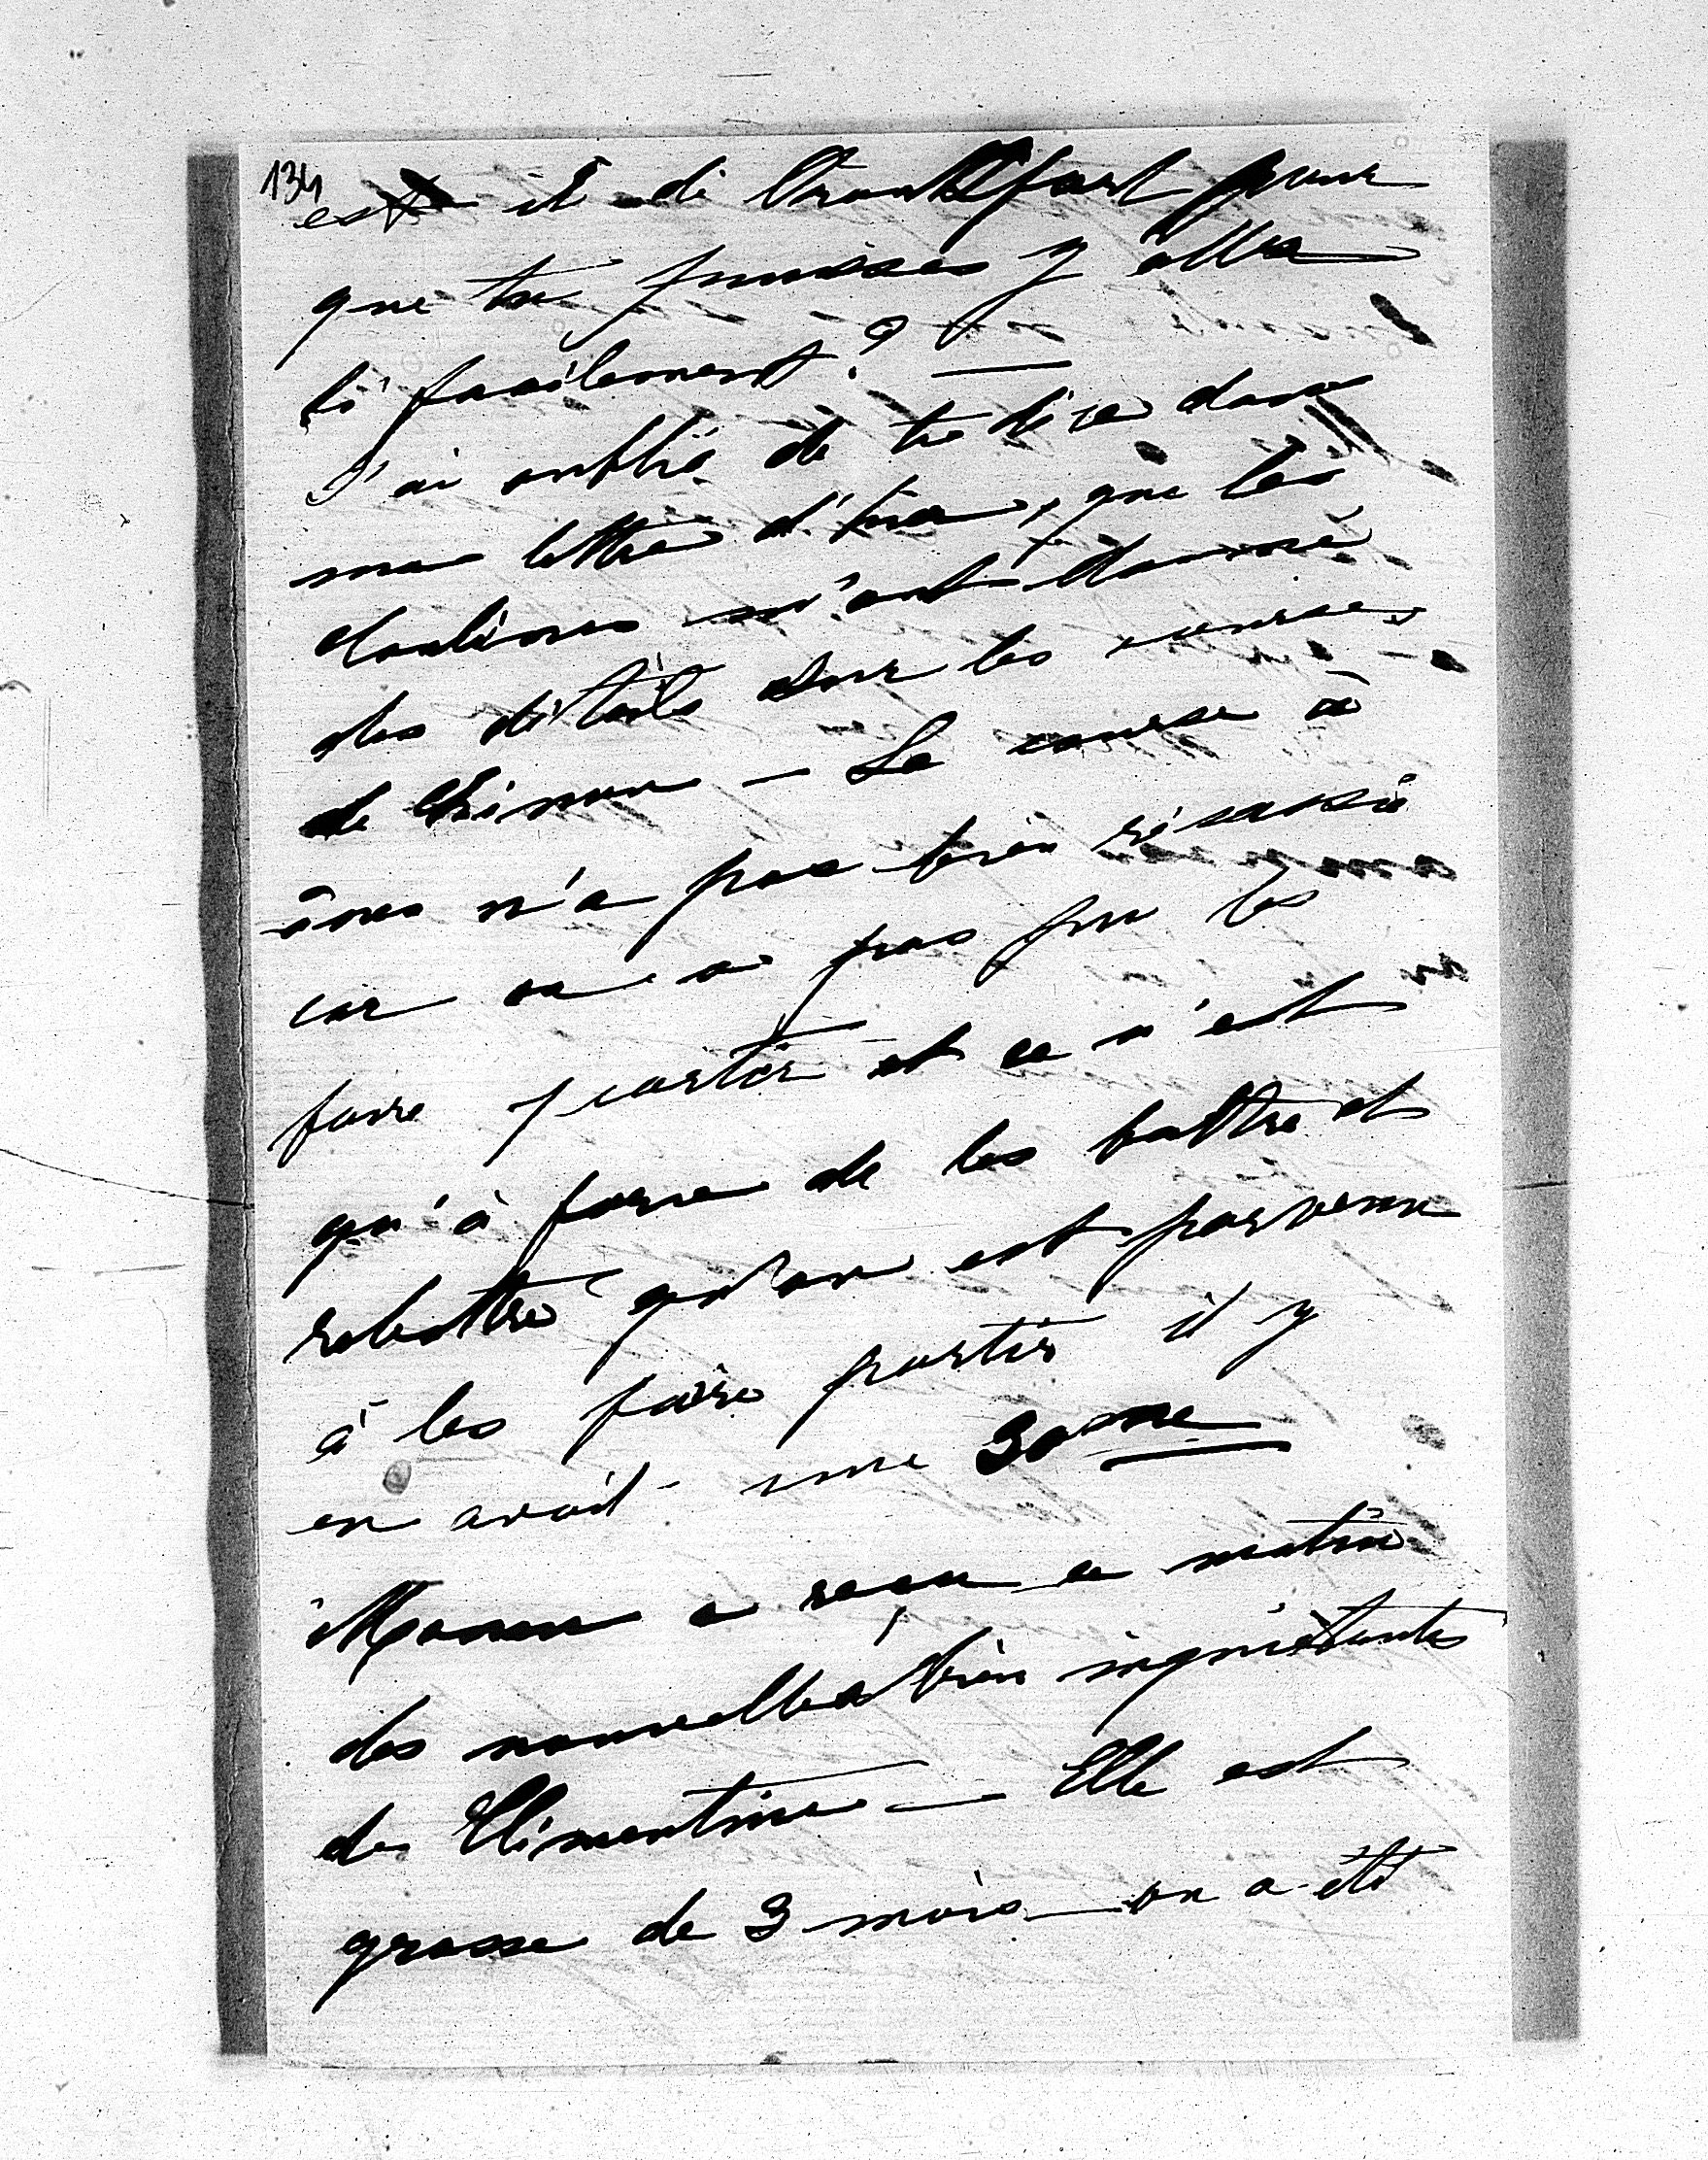 134
est il de Frantfort pour
que tu puisses y aller
si facilement ? —
J'ai oublié de te dire dans
ma lettre d'hier, que les
m'ont donné
des détails sur les courses
de Chinon — La course à
ânes n'a pas bien réussie
car on a pas pu les
faire partir et ce n'est
qu'à force de les battre et
rebattre qu'on est parvenu
à les faire partir il y
en avait une 30ne
Maman a recu ce matin
des nouvelles bien inquiétantes
de Clémentine — Elle est
grosse de 3 mois — on a été